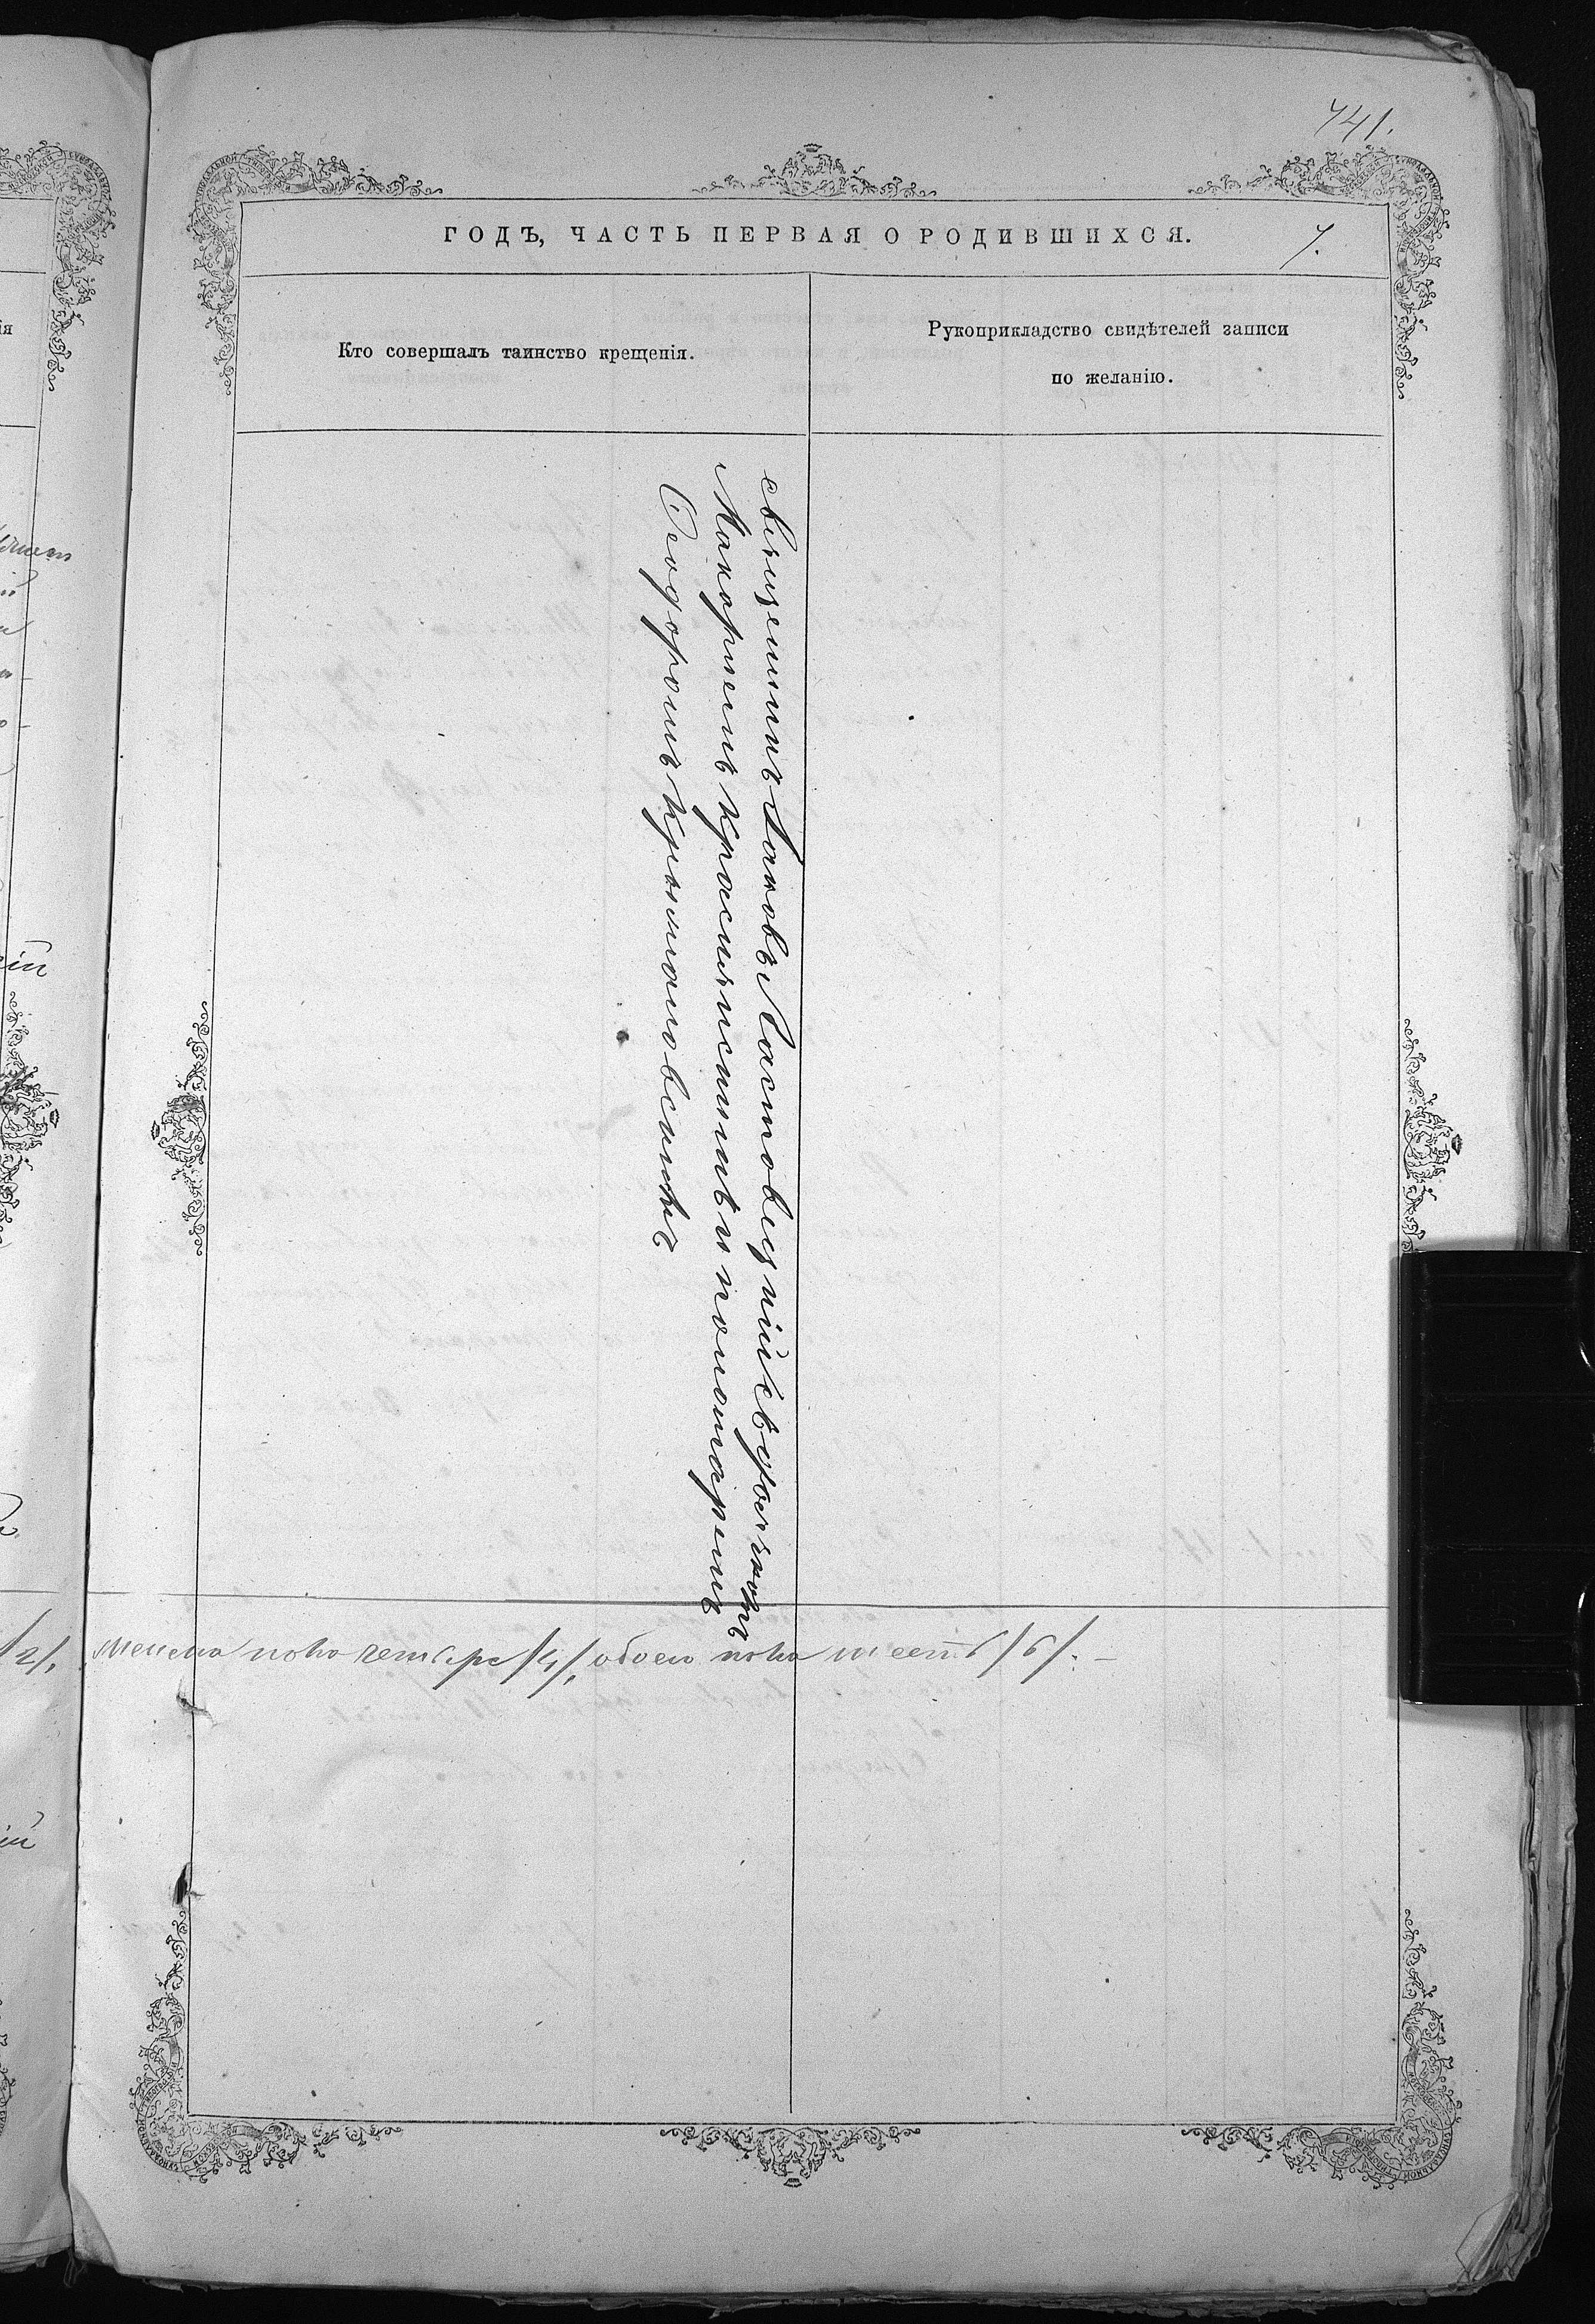 741.
ГОДЪ, ЧАСТЬ ПЕРВАЯ О РОДИВШИХСЯ.
7.
Кто совершалъ таинство крещенія.
Рукоприкладство свидѣтелей записи
по желанію.
священникъ Іаковъ Ластовецкий съ дьячкомъ
Макариемъ Красилискимъ и пономаремъ
Феодоромъ Крыжановскимъ
/2/. женска пола четыре /4/, обоего пола шесть /6/. —